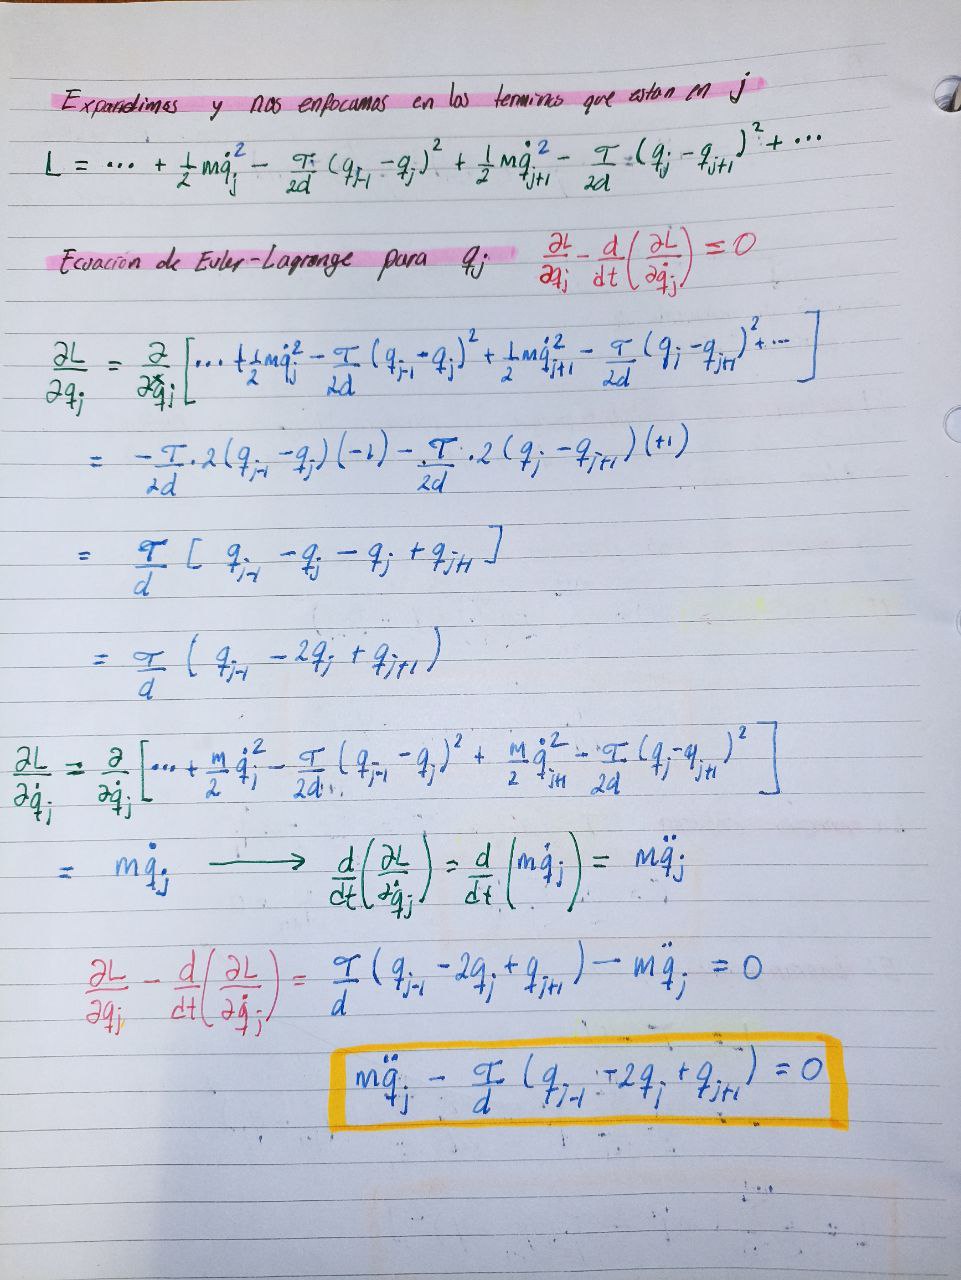 Expandimos y nos enfocamos en los terminos que estan en j
L = ··· + 1/2 mq̇_j² − τ/2d (q_{j-1} − q_j)² + 1/2 mq̇_{j+1}² − τ/2d (q_j − q_{j+1})² + ···
Ecuación de Euler-Lagrange para q_j   ∂L/∂q_j − d/dt (∂L/∂q̇_j) = 0
∂L/∂q_j = ∂/∂q_j [··· + 1/2 mq̇_j² − τ/2d (q_{j-1} − q_j)² + 1/2 mq̇_{j+1}² − τ/2d (q_j − q_{j+1})² + ···]
= −τ/2d · 2(q_{j-1} − q_j)(−1) − τ/2d · 2(q_j − q_{j+1})(+1)
= τ/d [q_{j-1} − q_j − q_j + q_{j+1}]
= τ/d (q_{j-1} − 2q_j + q_{j+1})
∂L/∂q̇_j = ∂/∂q̇_j [··· + m/2 q̇_j² − τ/2d (q_{j-1} − q_j)² + m/2 q̇_{j+1}² − τ/2d (q_j − q_{j+1})²]
= mq̇_j ⟶ d/dt (∂L/∂q̇_j) = d/dt (mq̇_j) = mq̈_j
∂L/∂q_j − d/dt (∂L/∂q̇_j) = τ/d (q_{j-1} − 2q_j + q_{j+1}) − mq̈_j = 0
mq̈_j − τ/d (q_{j-1} − 2q_j + q_{j+1}) = 0